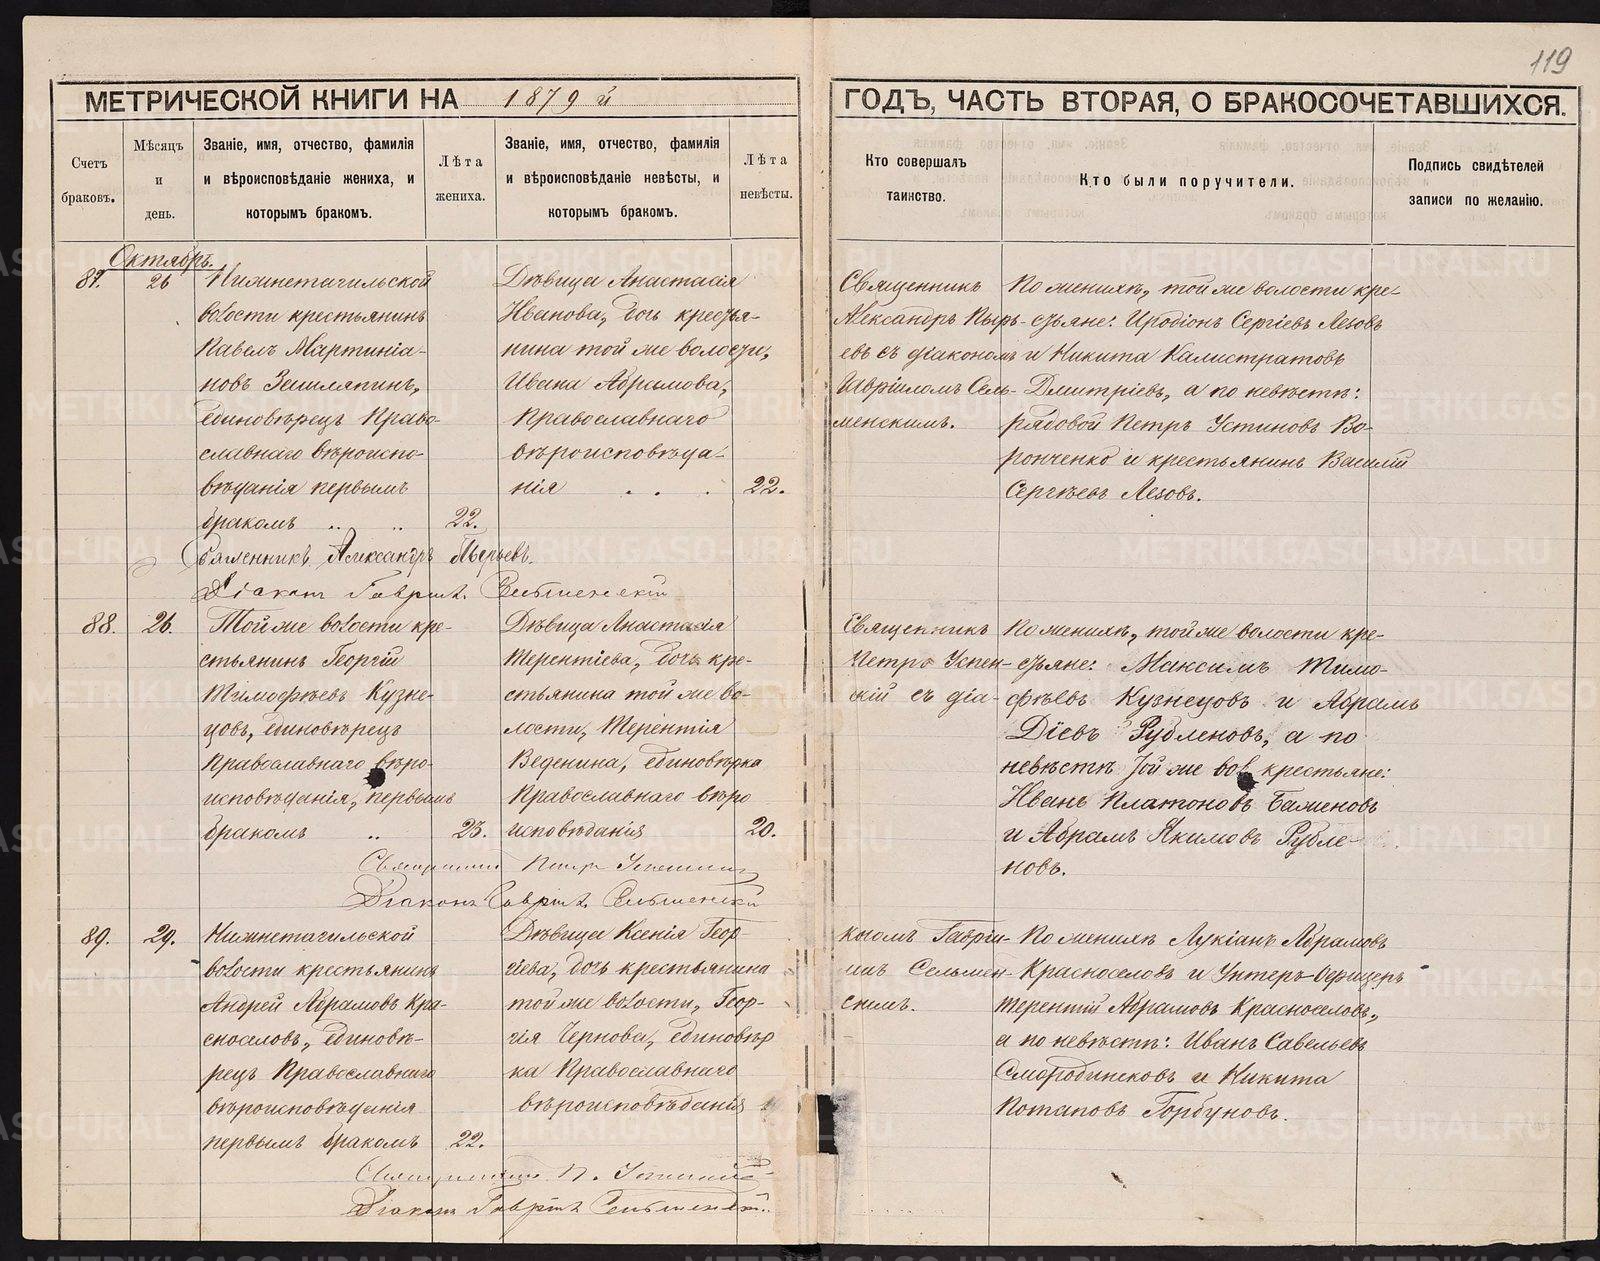 119
МЕТРИЧЕСКОЙ КНИГИ НА 1879 й
ГОДЪ, ЧАСТЬ ВТОРАЯ, О БРАКОСОЧЕТАВШИХСЯ.
Счетъ
браковъ.
Мѣсяцъ
и
день.
Званіе, имя, отчество, фамилія
и вѣроисповѣданіе жениха, и
которымъ бракомъ.
Лѣта
жениха.
Званіе, имя, отчество, фамилія
и вѣроисповѣданіе невѣсты, и
которымъ бракомъ.
Лѣта
невѣсты.
Кто совершалъ
таинство.
Кто были поручители.
Подпись свидѣтелей
записи по желанію.
Октябрь.
87.
26
Нижнетагильской
волости крестьянинъ
Павелъ Мартиніа-
новъ Земляпинъ,
единовѣрецъ Право-
славнаго вѣроиспо-
вѣданія первымъ
бракомъ .. .. 22.
Дѣвица Анастасія
Иванова, дочь крестья-
нина той же волости,
Ивана Абрамова,
Православнаго
вѣроисповѣда-
нія . . . 22.
Священникъ
Александръ Пырь-
евъ съ діакономъ
Гавріиломъ Сель-
менскимъ.
По женихѣ, той же волости кре-
стьяне: Иродіонъ Сергіевъ Лезовъ
и Никита Калистратовъ
Дмитріевъ, а по невѣстѣ:
рядовой Петръ Устиновъ Во-
ронченко и крестьянинъ Василій
Сергѣевъ Лезовъ.
Священникъ Александръ Пырьевъ.
Діаконъ Гавріилъ Сельменскій
88.
26.
Той же волости кре-
стьянинъ Георгій
Тимофѣевъ Кузне-
цовъ, единовѣрецъ
Православнаго вѣро-
исповѣданія, первымъ
бракомъ .. 23.
Дѣвица Анастасія
Терентіева, дочь кре-
стьянина той же во-
лости, Терентія
Веденина, единовѣрка
Православнаго вѣро
исповѣданія 20.
Священникъ
Петръ Успен-
скій съ діа-
По женихѣ, той же волости кре-
стьяне: Максимъ Тимо-
фѣевъ Кузнецовъ и Абрамъ
Діевъ Рубленовъ, а по
невѣстѣ той же вол. крестьяне:
Иванъ Платоновъ Баженовъ
и Абрамъ Якимовъ Рубле-
новъ.
Священникъ Петръ Успенскій
Діаконъ Гавріилъ Сельменскій
89.
29.
Нижнетагильской
волости крестьянинъ
Андрей Абрамовъ Кра-
сноселовъ, единовѣ-
рецъ Православнаго
вѣроисповѣданія
первымъ бракомъ 22.
Дѣвица Ксенія Геор-
гіева, дочь крестьянина
той же волости, Геор-
гія Чернова, единовѣр
ка Православнаго
вѣроисповѣданія
кномъ Гавріи-
ломъ Сельмен-
скимъ.
По женихѣ Лукіанъ Абрамовъ
Красноселовъ и Унтеръ-Офицеръ
Терентій Абрамовъ Красноселовъ,
а по невѣстѣ: Иванъ Савельевъ
Смородинсковъ и Никита
Потаповъ Горбуновъ.
Священникъ П. Успенскій
Діаконъ Гавріилъ Сельменскій.
METRIKI.GASO-URAL.RU